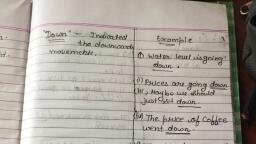 "Down" - Indicated
the downwards
movement.
Example
(i) Water level is going
down.
(ii) Prices are going down
(iii) Maybe we should
just sit down
(iv) The price of Coffee
went down